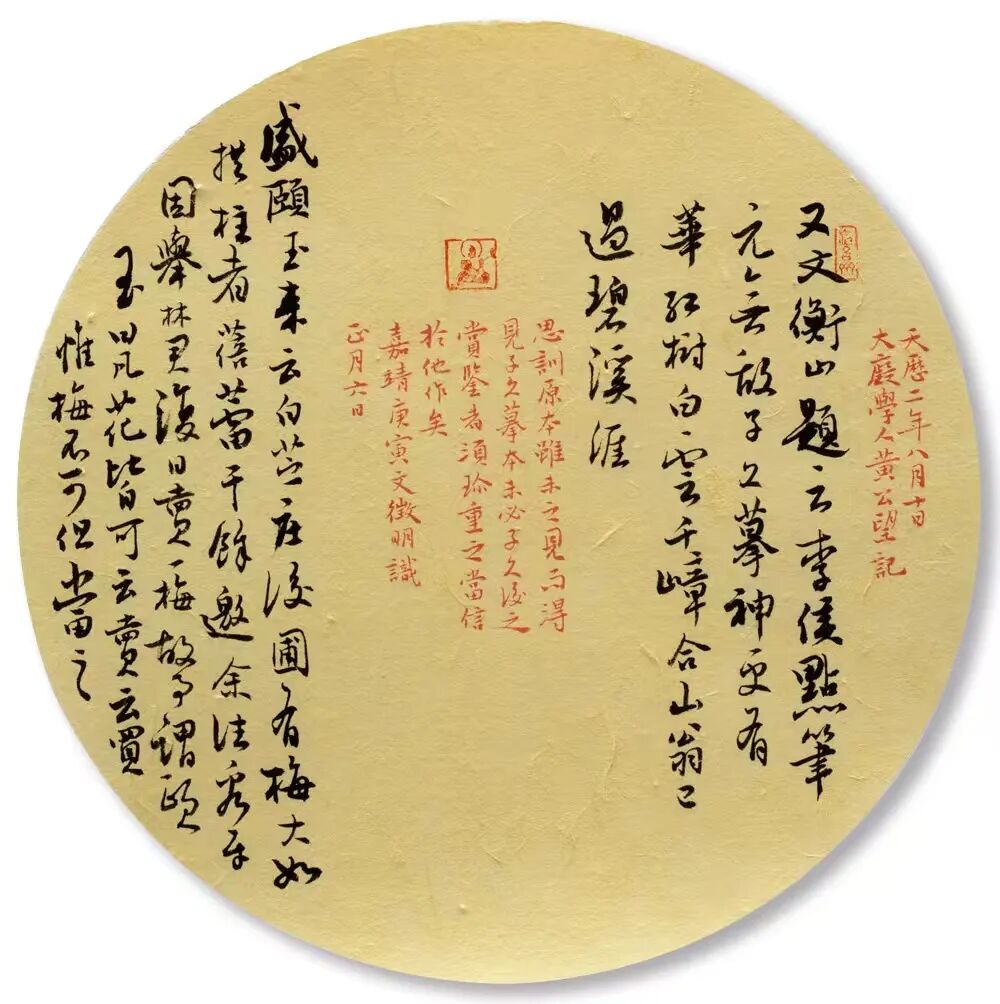 天歷二年八月十日
大癡學人黃公望記
又文衡山題云李侯點筆
元無敵子久摹神更有
華紅樹白雲千嶂合山翁已
過碧溪涯
思訓原本雖未之見而得
見子久摹本未必子久後之
賞鑒者須珍重之當信
於他作矣
嘉靖庚寅文徵明識
正月六日
盛頤玉来云白芷庄後圃有梅大如
拱柱者蓓蕾千餘邀余往看
因舉林君復日賣一梅故事謂頤
玉曰凡花皆可云賣云買
惟梅不可但當之